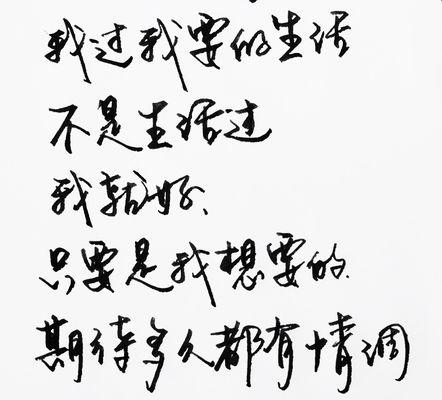 我过我要的生活
不是生活过
我就好、
只要是我想要的
期待多久都有情调